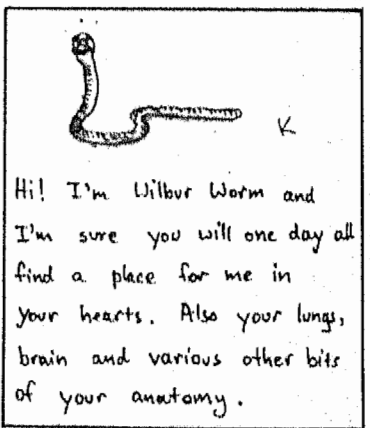 K
Hi! I'm Wilbur Worm and
I'm sure you will one day all
find a place for me in
your hearts. Also your lungs,
brain and various other bits
of your anatomy.